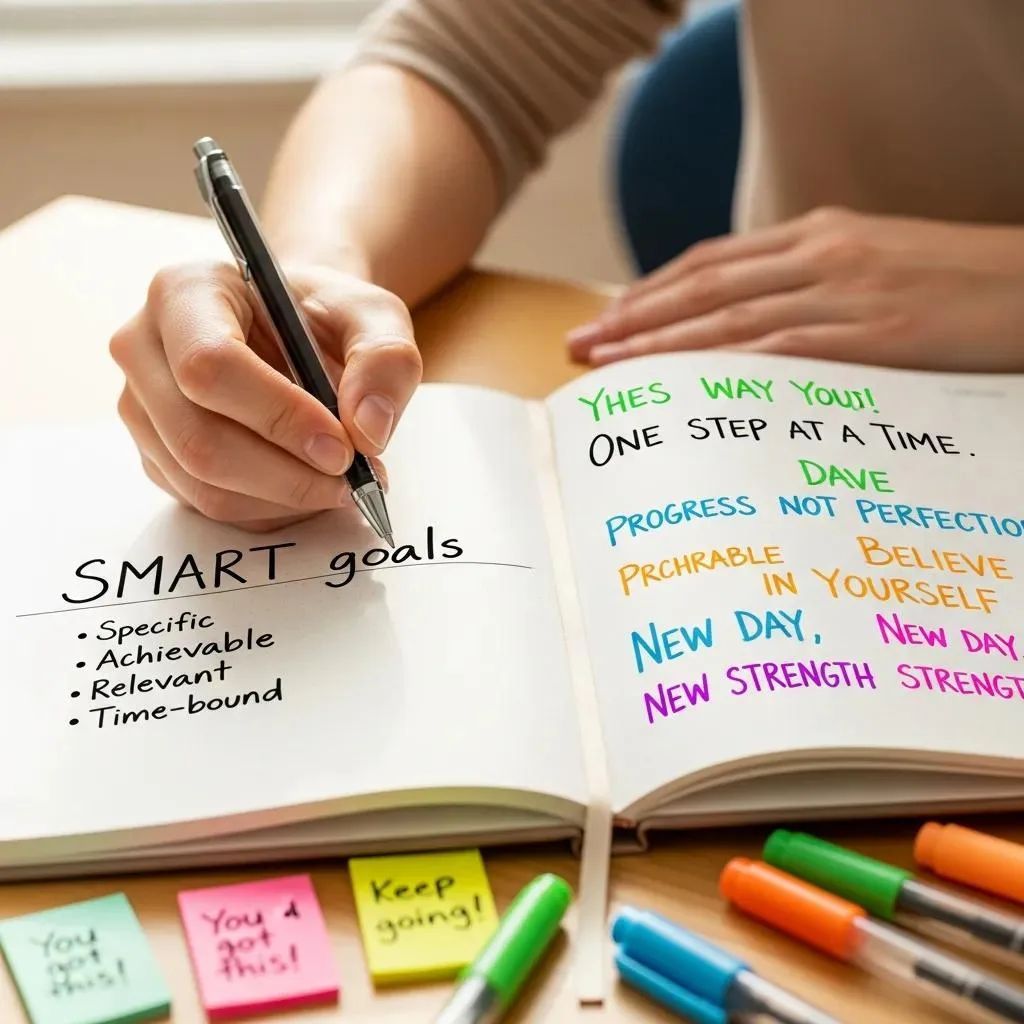 SMART goals
• Specific
• Achievable
• Relevant
• Time-bound
YHES WAY YOUT!
ONE STEP AT A TIME.
DAVE
PROGRESS NOT PERFECTIO
PRCHRABLE BELIEVE
IN YOURSELF
NEW DAY, NEW DAY,
NEW STRENGTH STRENGT
You
got
this!
You
got
this!
Keep
going!